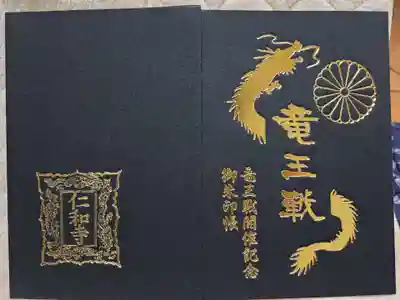 竜王戦
竜王戦開催記念
御朱印帳
仁和寺